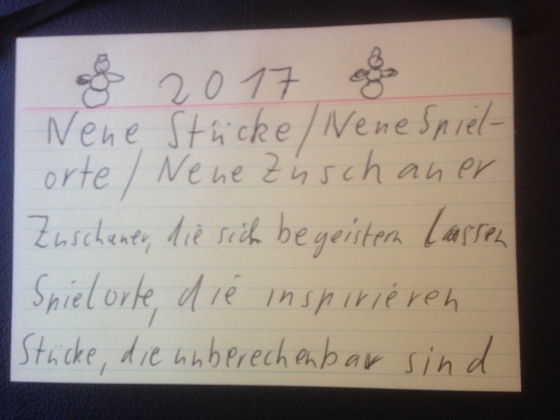 2017
Neue Stücke/Neue Spiel-
orte/Neue Zuschauer
Zuschauer, die sich begeistern lassen
Spielorte, die inspirieren
Stücke, die unberechenbar sind